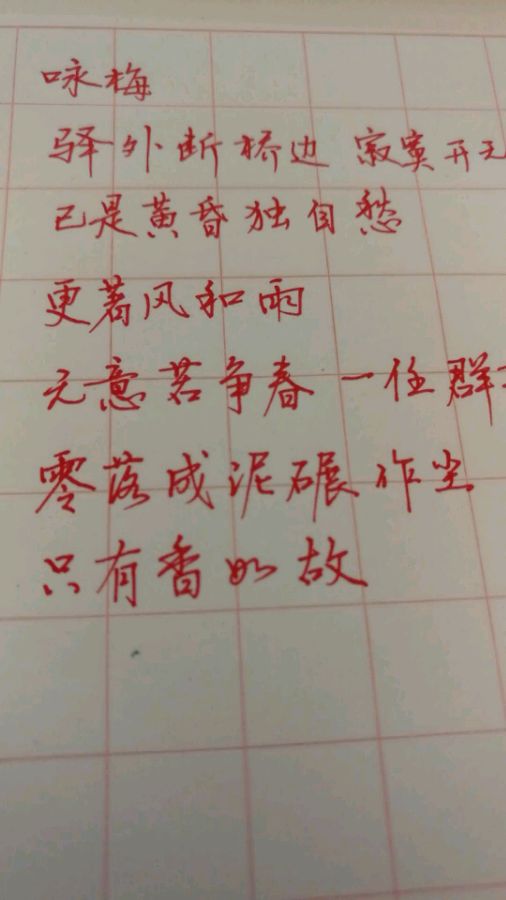 咏梅
驿外断桥边 寂寞开无
已是黄昏独自愁
更著风和雨
无意苦争春 一任群
零落成泥碾作尘
只有香如故